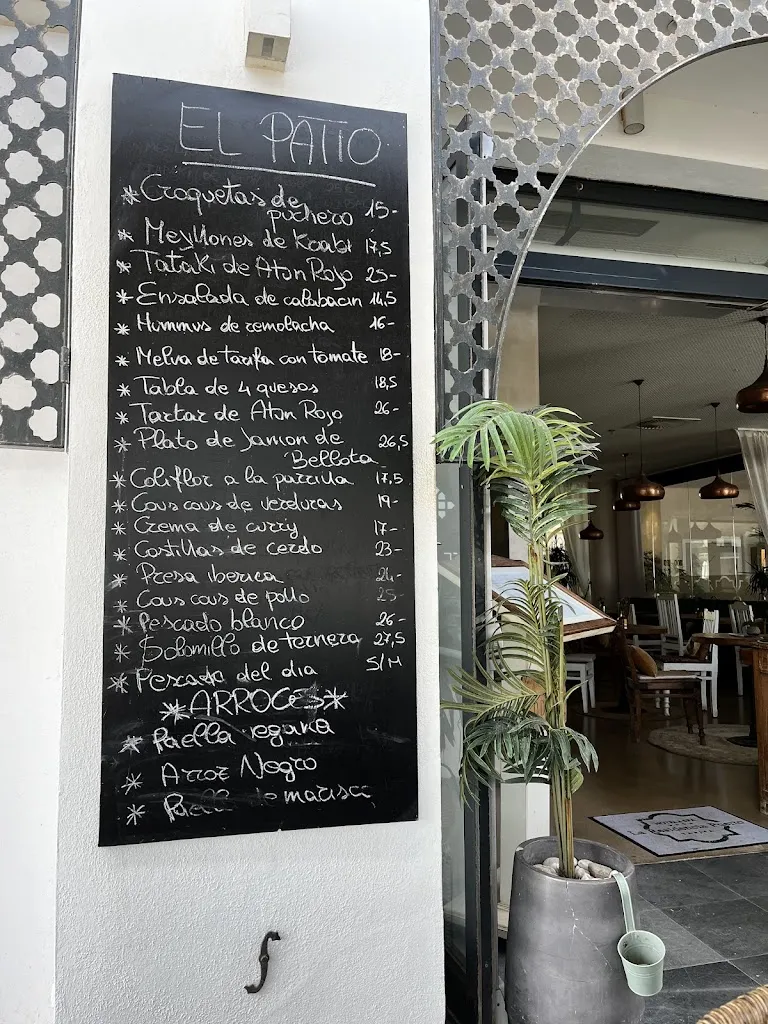 EL PATIO
* Croquetas de
puchero 15-
* Mejillones de Kaabi 17,5
* Tataki de Atun Rojo 25-
* Ensalada de calabacin 14,5
* Hummus de remolacha 16-
* Melva de tarifa con tomate 18-
* Tabla de 4 quesos 18,5
* Tartar de Atun Rojo 26-
* Plato de Jamon de 26,5
Bellota
* Coliflor a la parrilla 17,5
* Cous cous de verduras 19-
* Crema de curry 17-
* Costillas de cerdo 23-
* Presa iberica 24-
* Cous cous de pollo 25-
* Pescado blanco 26-
* Solomillo de ternera 27,5
* Pescada del dia S/M
*ARROCES*
* Paella vegana
* Arroz Negro
* Paella de marisco